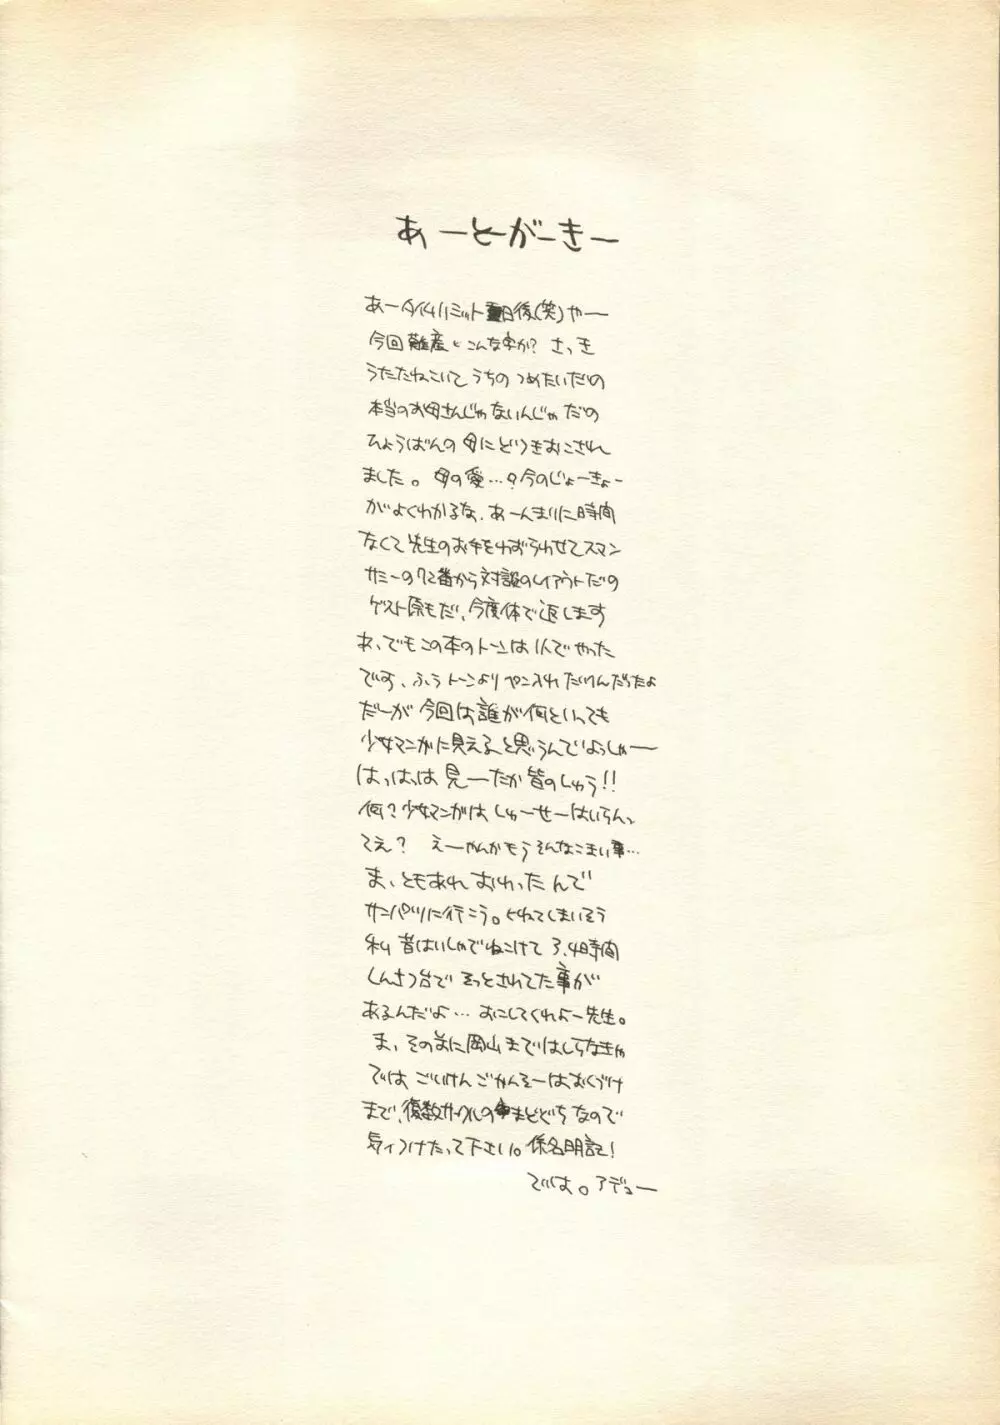 あーとーがーきー
あータイムリミット重日後(笑)やー
今回難産とこんな字か? さっき
うたたねこいてうちのつめたいだの
本当のお母さんじゃないんじゃだの
ひょうばんの母にどつきおこされ
ました。母の愛…?今のじょーきょー
がよくわかるな、あーんまりに時間
なくて先生のお手をわずらわせてスマン
サミーの72番から対談のレイアウトだの
ゲスト原もだ、今度体で返します
あ、でもこの本のトーンは1人でやった
です、ふぅトーンよりペン入れだけんだったよ
だーが今回は誰が何といっても
少女マンガに見えると思うんでよっしゃー
はっはっは見ーたか皆のしゅう!!
何?少女マンガはしゅーせーはいらんっ
てえ? えーやんかもうそんなこまい事…
ま、ともあれおわったんで
サンパツに行こう。とれてしまいそう
私昔はいしゃでねこけて3.4時間
しんさつ台でそっとされてた事が
あるんだよ…おこしてくれよー先生。
ま、その前に岡山まではしらなきゃ
では ごいけんごかんそーはおくづけ
まで、複数サークルのまどぐちなので
気ィつけたって下さい。係名明記!
では。アデュー